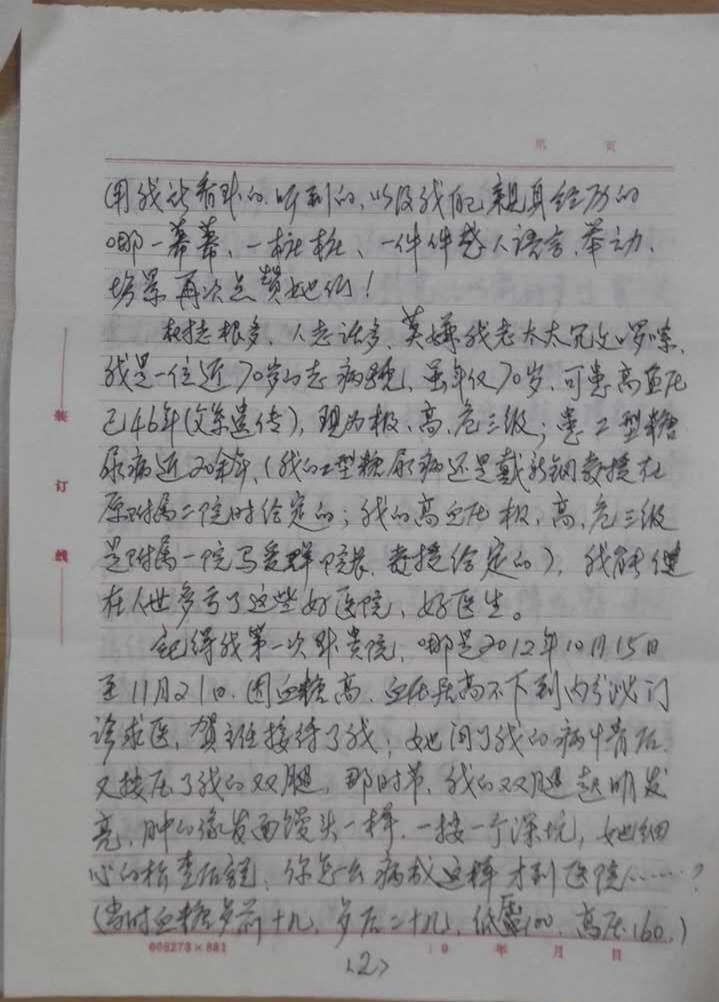 第 页
用我所看到的、听到的,以及我自己亲身经历的
哪一幕幕、一桩桩、一件件感人语言、举动、
场景再次点赞她们!
树老根多、人老话多、莫嫌我老太太冗文啰嗦、
我是一位近70岁的老病号,虽年仅70岁,可患高血压
已46年(父系遗传),现为极、高、危三级;患二型糖
尿病近20余年、(我的二型糖尿病还是戴新钢教授在
原附属二院时给定的;我的高血压极、高、危三级
是附属一院马爱群院长、教授给定的),我能健
在人世多亏了这些好医院、好医生。
记得我第一次到贵院,哪是2012年10月15日
至11月21日,因血糖高、血压居高不下到内分泌门
诊求医,贺主任接待了我;她问了我的病情后,
又按压了我的双腿,那时节,我的双腿起明发
亮,肿的像发面馒头一样,一按一个深坑,她细
心的检查后说:你怎么病成这样才到医院……?
(当时血糖步前十几,步后二十几),低压100,高压160,)
608273×881 19 年 月 日
<2>
装
订
线